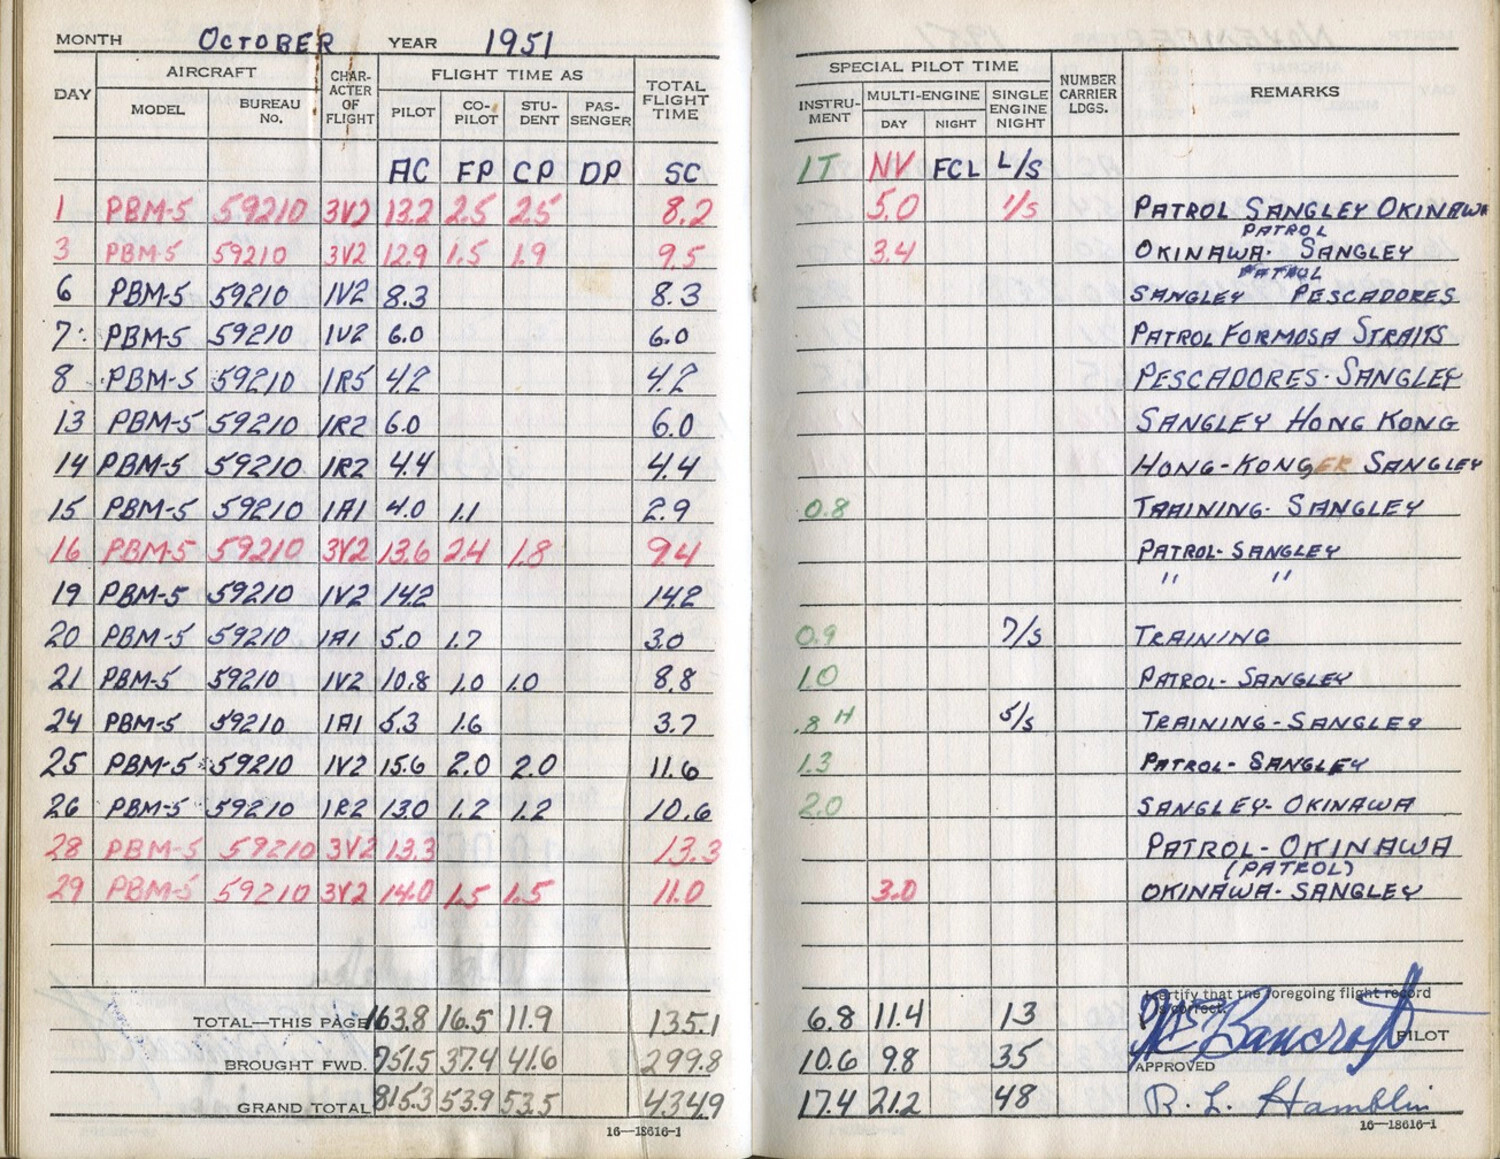 MONTH OCTOBER YEAR 1951
DAY AIRCRAFT MODEL BUREAU No. CHARACTER OF FLIGHT FLIGHT TIME AS PILOT CO-PILOT STUDENT PASSENGER TOTAL FLIGHT TIME SPECIAL PILOT TIME INSTRUMENT MULTI-ENGINE DAY NIGHT SINGLE ENGINE NIGHT NUMBER CARRIER LDGS. REMARKS
AC FP CP DP SC IT NV FCL L/S
1 PBM-5 59210 3V2 13.2 2.5 2.5 8.2 5.0 1/S PATROL SANGLEY OKINAWA
3 PBM-5 59210 3V2 12.9 1.5 1.9 9.5 3.4 OKINAWA- PATROL SANGLEY
6 PBM-5 59210 1V2 8.3 8.3 SANGLEY PATROL PESCADORES
7 PBM-5 59210 1V2 6.0 6.0 PATROL FORMOSA STRAITS
8 PBM-5 59210 1R5 4.2 4.2 PESCADORES-SANGLEY
13 PBM-5 59210 1R2 6.0 6.0 SANGLEY HONG KONG
14 PBM-5 59210 1R2 4.4 4.4 HONG-KONGER SANGLEY
15 PBM-5 59210 1A1 4.0 1.1 2.9 0.8 TRAINING- SANGLEY
16 PBM-5 59210 3V2 13.6 2.4 1.8 9.4 PATROL-SANGLEY
19 PBM-5 59210 1V2 14.2 14.2 " "
20 PBM-5 59210 1A1 5.0 1.7 3.0 0.9 7/S TRAINING
21 PBM-5 59210 1V2 10.8 1.0 1.0 8.8 1.0 PATROL- SANGLEY
24 PBM-5 59210 1A1 5.3 1.6 3.7 .8 H 5/S TRAINING-SANGLEY
25 PBM-5 59210 1V2 15.6 2.0 2.0 11.6 1.3 PATROL- SANGLEY
26 PBM-5 59210 1R2 13.0 1.2 1.2 10.6 2.0 SANGLEY- OKINAWA
28 PBM-5 59210 3V2 13.3 13.3 PATROL-OKINAWA
29 PBM-5 59210 3V2 14.0 1.5 1.5 11.0 3.0 OKINAWA- (PATROL) SANGLEY
I certify that the foregoing flight record is correct.
TOTAL—THIS PAGE 163.8 16.5 11.9 135.1 6.8 11.4 13 Bancroft PILOT
BROUGHT FWD. 751.5 37.4 41.6 299.8 10.6 9.8 35 APPROVED
GRAND TOTAL 815.3 53.9 53.5 434.9 17.4 21.2 48 R. L. Hamblin
16—18616-1 16—18616-1